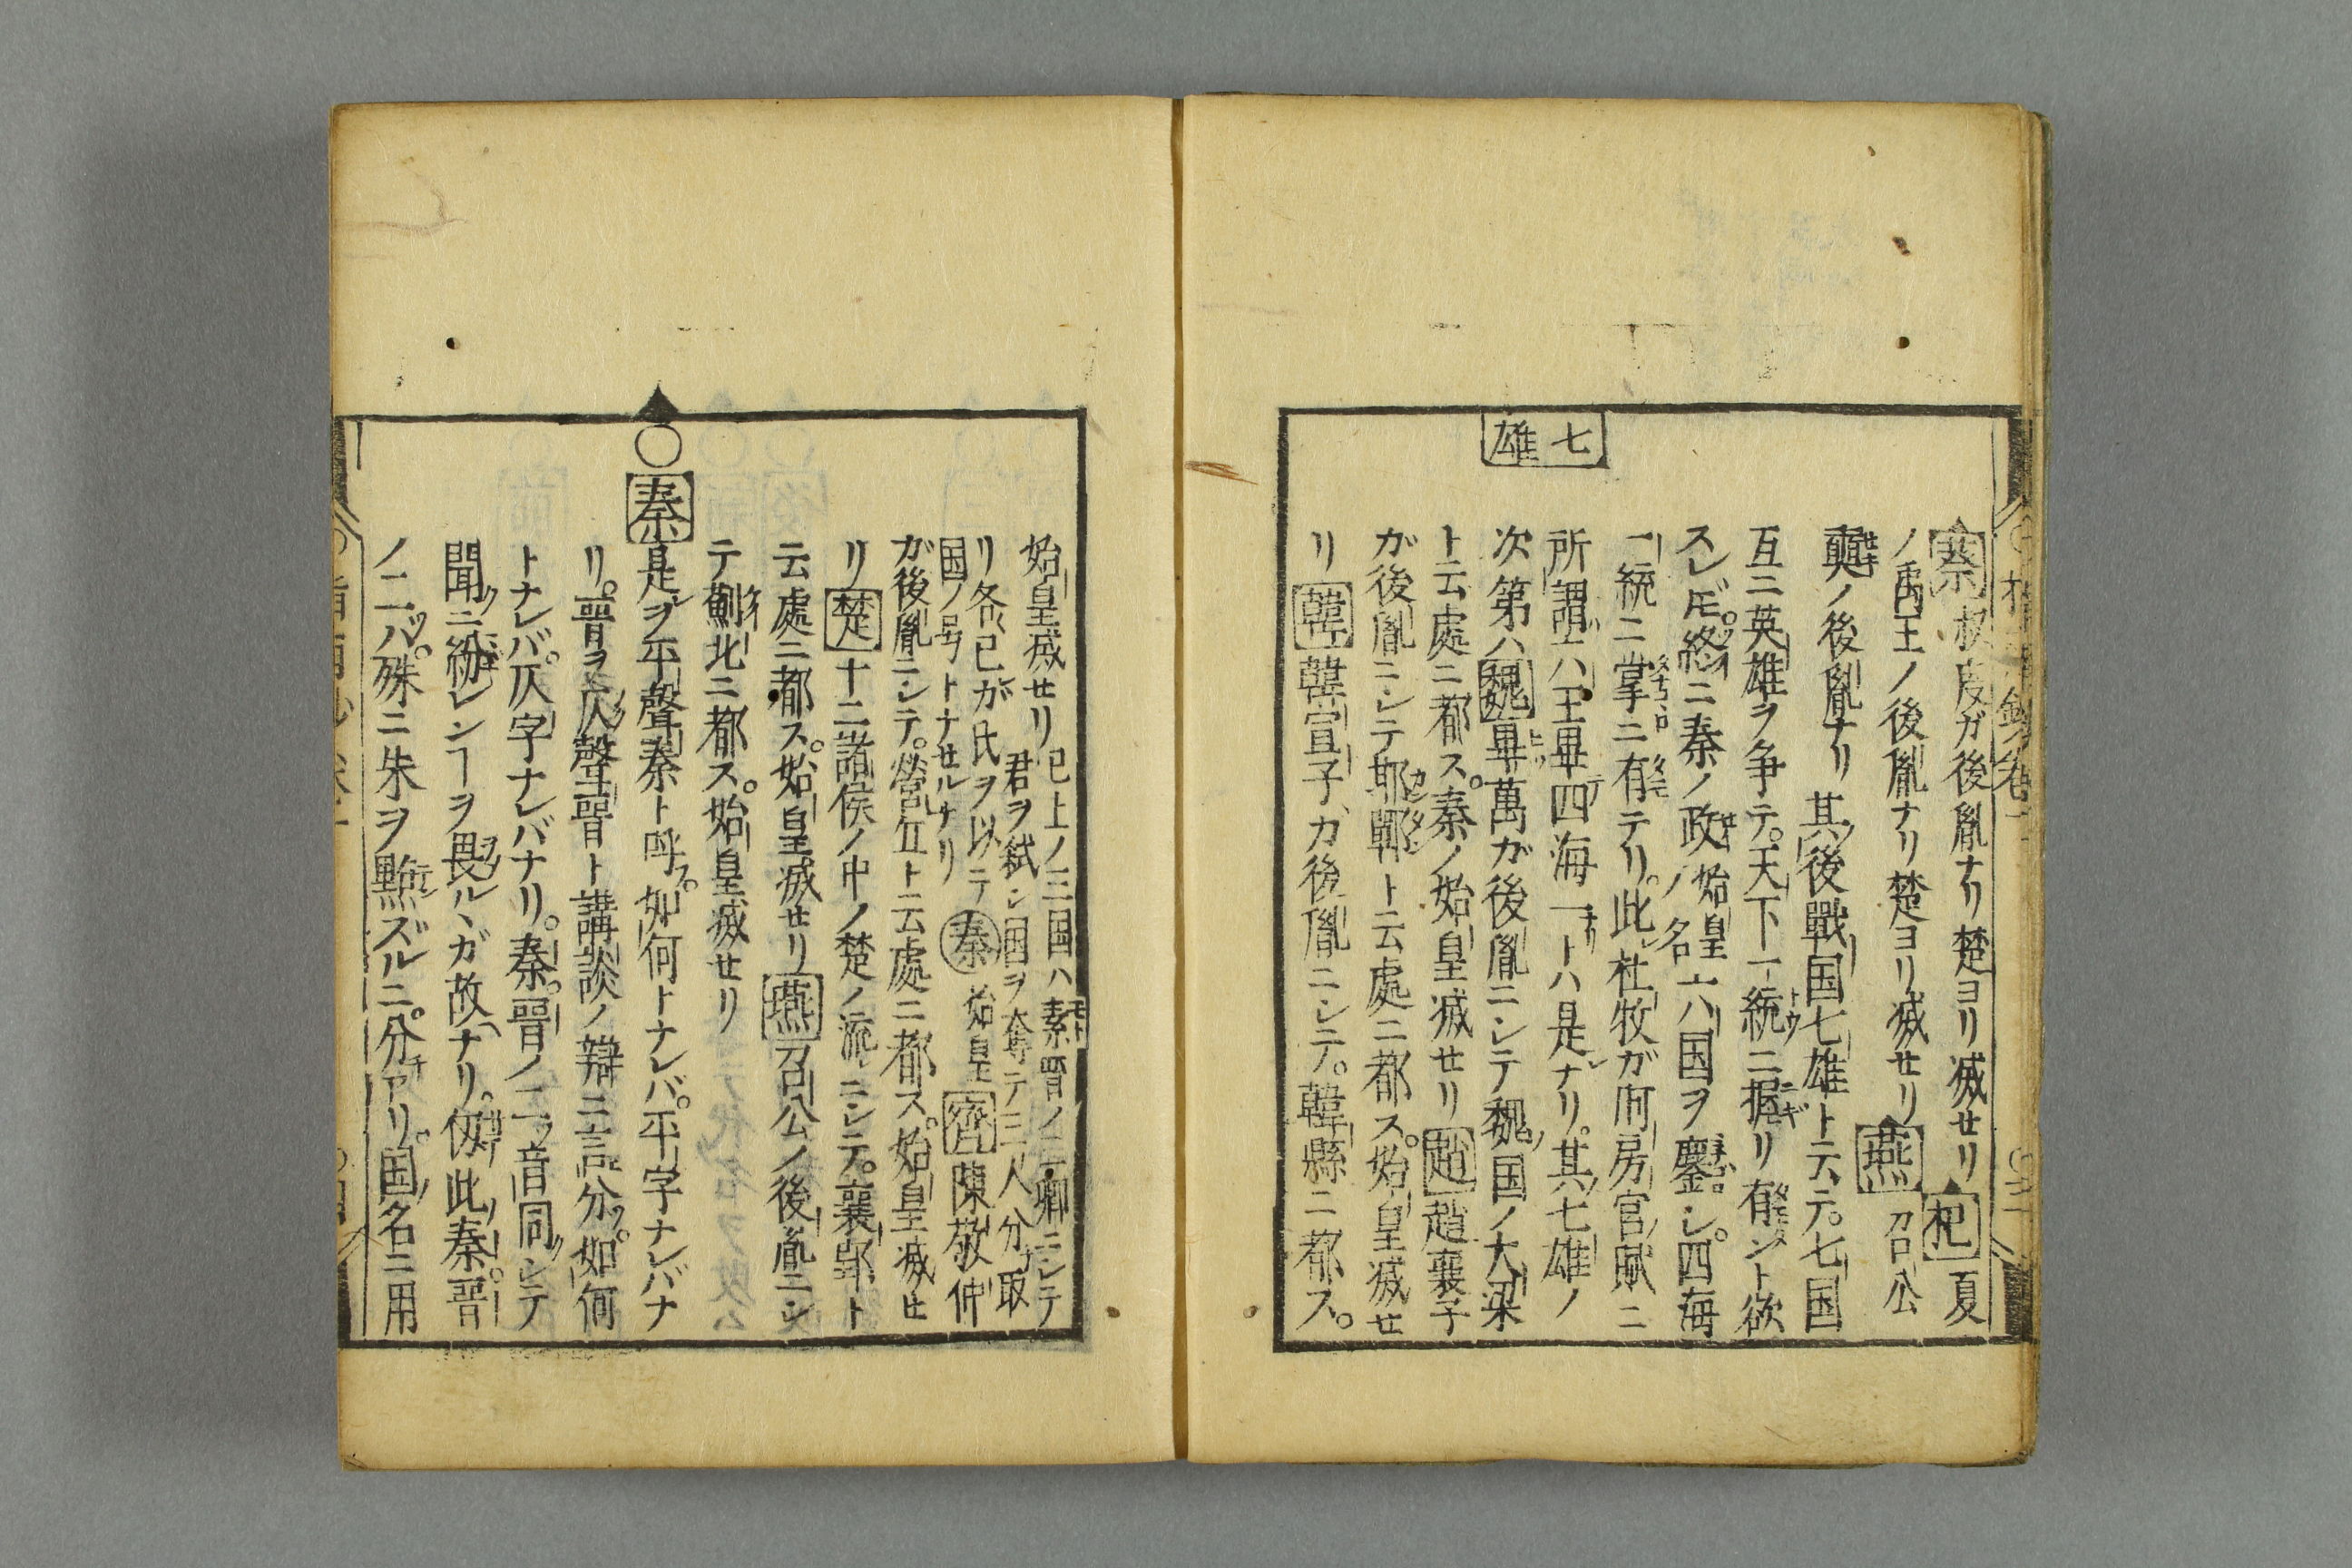 蔡叔度ガ後胤ナリ楚ヨリ滅せリ杞夏
ノ禹王ノ後胤ナリ楚ヨリ滅せリ燕召公
奭ノ後胤ナリ其後戰国七雄ト云テ。七国
互ニ英雄ヲ争テ。天下一統ニ握リ有ント欲
スレ𪜈。終ニ秦ノ政ノ名始皇六国ヲ鏖シ。四海
一統ニ掌ニ有テリ。此杜牧ガ阿房宮賦ニ
所謂六王畢四海一トハ是ナリ。其七雄ノ
七雄
次第ハ魏畢萬ガ後胤ニシテ魏国ノ大梁
ト云處ニ都ス。秦ノ始皇滅せリ趙趙襄子
ガ後胤ニシテ邯鄲ト云處ニ都ス。始皇滅せ
リ韓韓宣子ガ後胤ニシテ。韓縣ニ都ス。
始皇滅せリ已上ノ三国ハ素晋ノ三卿ニシテ
君ヲ弑シ国ヲ奪テ三人分取
リ各己ガ氏ヲ以テ
国ノ号トナせルナリ秦始皇齊陳敬仲
ガ後胤ニシテ。營丘ト云處ニ都ス。始皇滅せ
リ楚十二諸侯ノ中ノ楚ノ流ニシテ。襄郢ト
云處ニ都ス。始皇滅せリ燕召公ノ後胤ニシ
テ薊北ニ都ス。始皇滅せリ
○秦是ヲ平聲秦ト呼。如何トナレバ。平字ナレバナ
リ。晋ヲ仄聲晋ト講談ノ辯ニ言分。如何
トナレバ。仄字ナレバナリ。秦。晋ノ二ツ音同シテ
聞ニ紛レンヿヲ畏ルヽガ故ナリ。仭此秦。晋
ノ二ハ。殊ニ朱ヲ點ズルニ。分アリ。国名ニ用